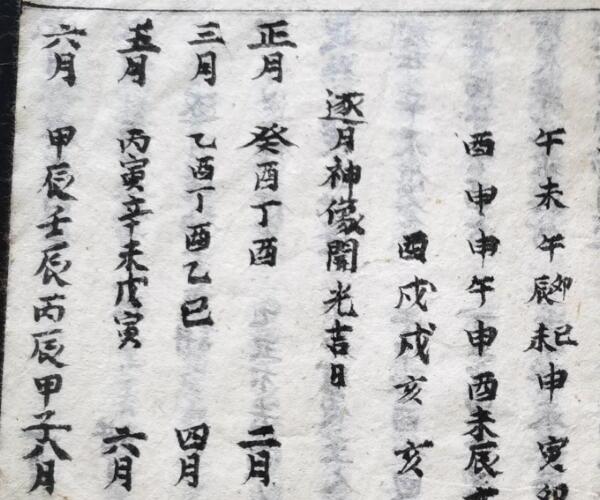 午未午辰卯未巳申寅
酉申申午申酉未辰
酉戌戌亥亥
逐月神像開光吉日
正月 癸酉丁酉 二月
三月 乙酉丁酉乙巳 四月
五月 丙寅辛未戊寅 六月
六月 甲辰壬辰丙辰甲子 八月